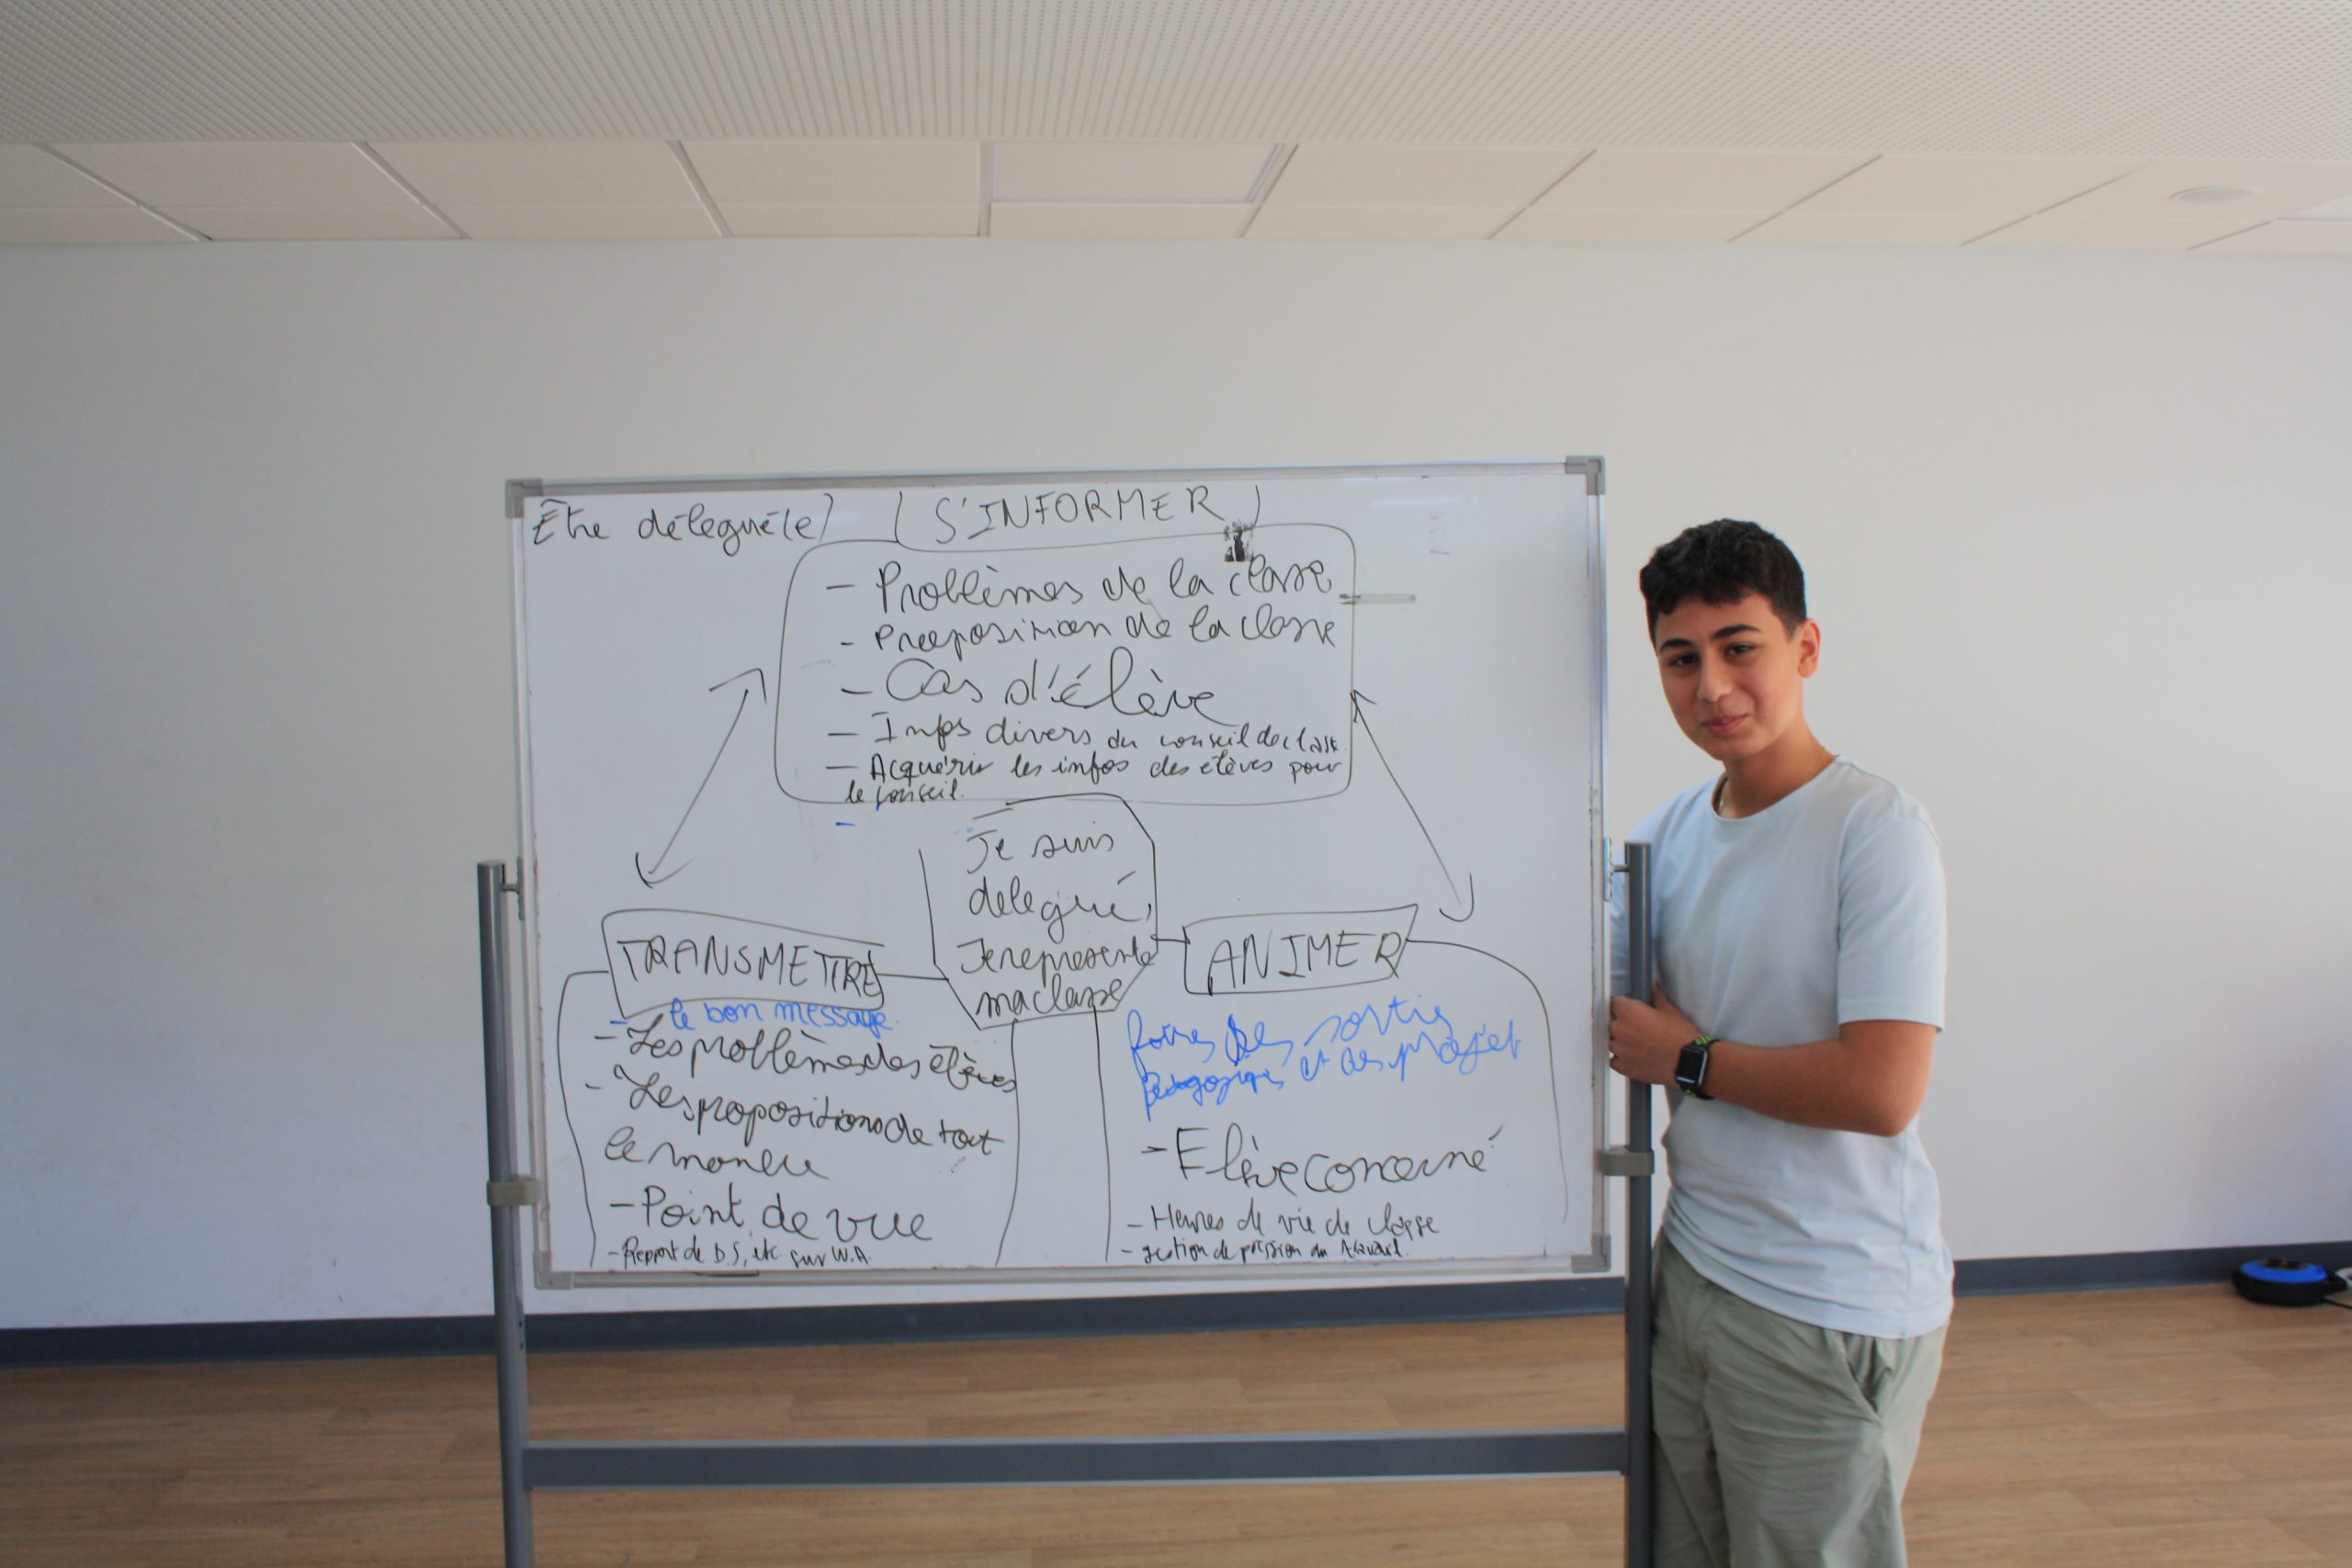 Être délégué(e)
S'INFORMER
- Problèmes de la classe
- Preeposition de la classe
- Cas d'élève
- Infos divers du conseil de classe.
- Acquérir les infos des élèves pour
le conseil.
-
Je suis
delegué,
Je represente
ma classe
TRANSMETTRE
- le bon message.
- Les problèmes des élèves
- Les propositions de tout
le monde
- Point de vue
- Report de D.S, etc sur W.A.
ANIMER
des sortis
pédagogiques et des projet
- Elève concerné
- Heures de vie de classe
- gestion de pression au travail.